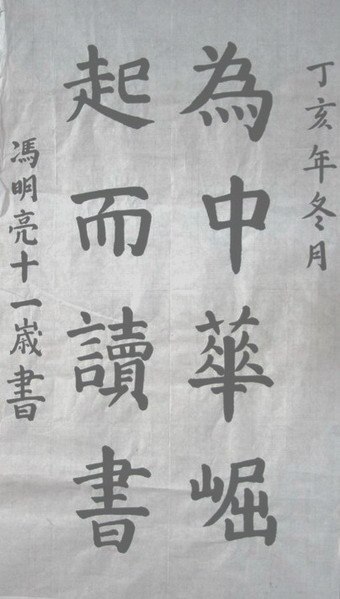 丁亥年冬月
為中華崛
起而讀書
馮明亮十一歲書